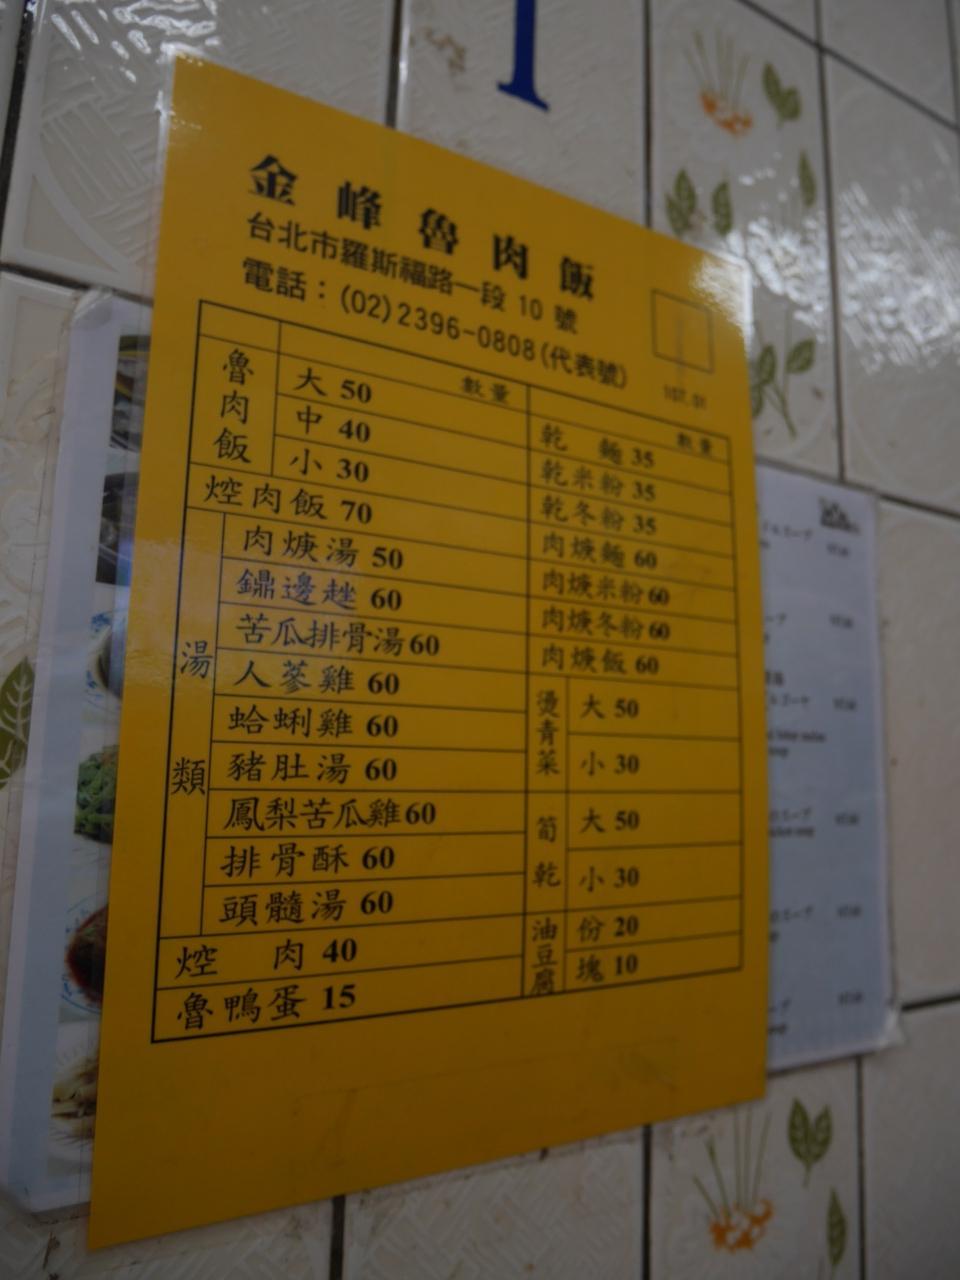 1
金峰魯肉飯
台北市羅斯福路一段 10 號
電話：(02)2396-0808(代表號)
107.01
數量
魯肉飯
大 50
中 40
小 30
焢肉飯 70
湯類
肉焿湯 50
鼎邊趖 60
苦瓜排骨湯 60
人蔘雞 60
蛤蜊雞 60
豬肚湯 60
鳳梨苦瓜雞 60
排骨酥 60
頭髓湯 60
焢肉 40
魯鴨蛋 15
數量
乾麵 35
乾米粉 35
乾冬粉 35
肉焿麵 60
肉焿米粉 60
肉焿冬粉 60
肉焿飯 60
燙青菜
大 50
小 30
筍乾
大 50
小 30
油豆腐
份 20
塊 10